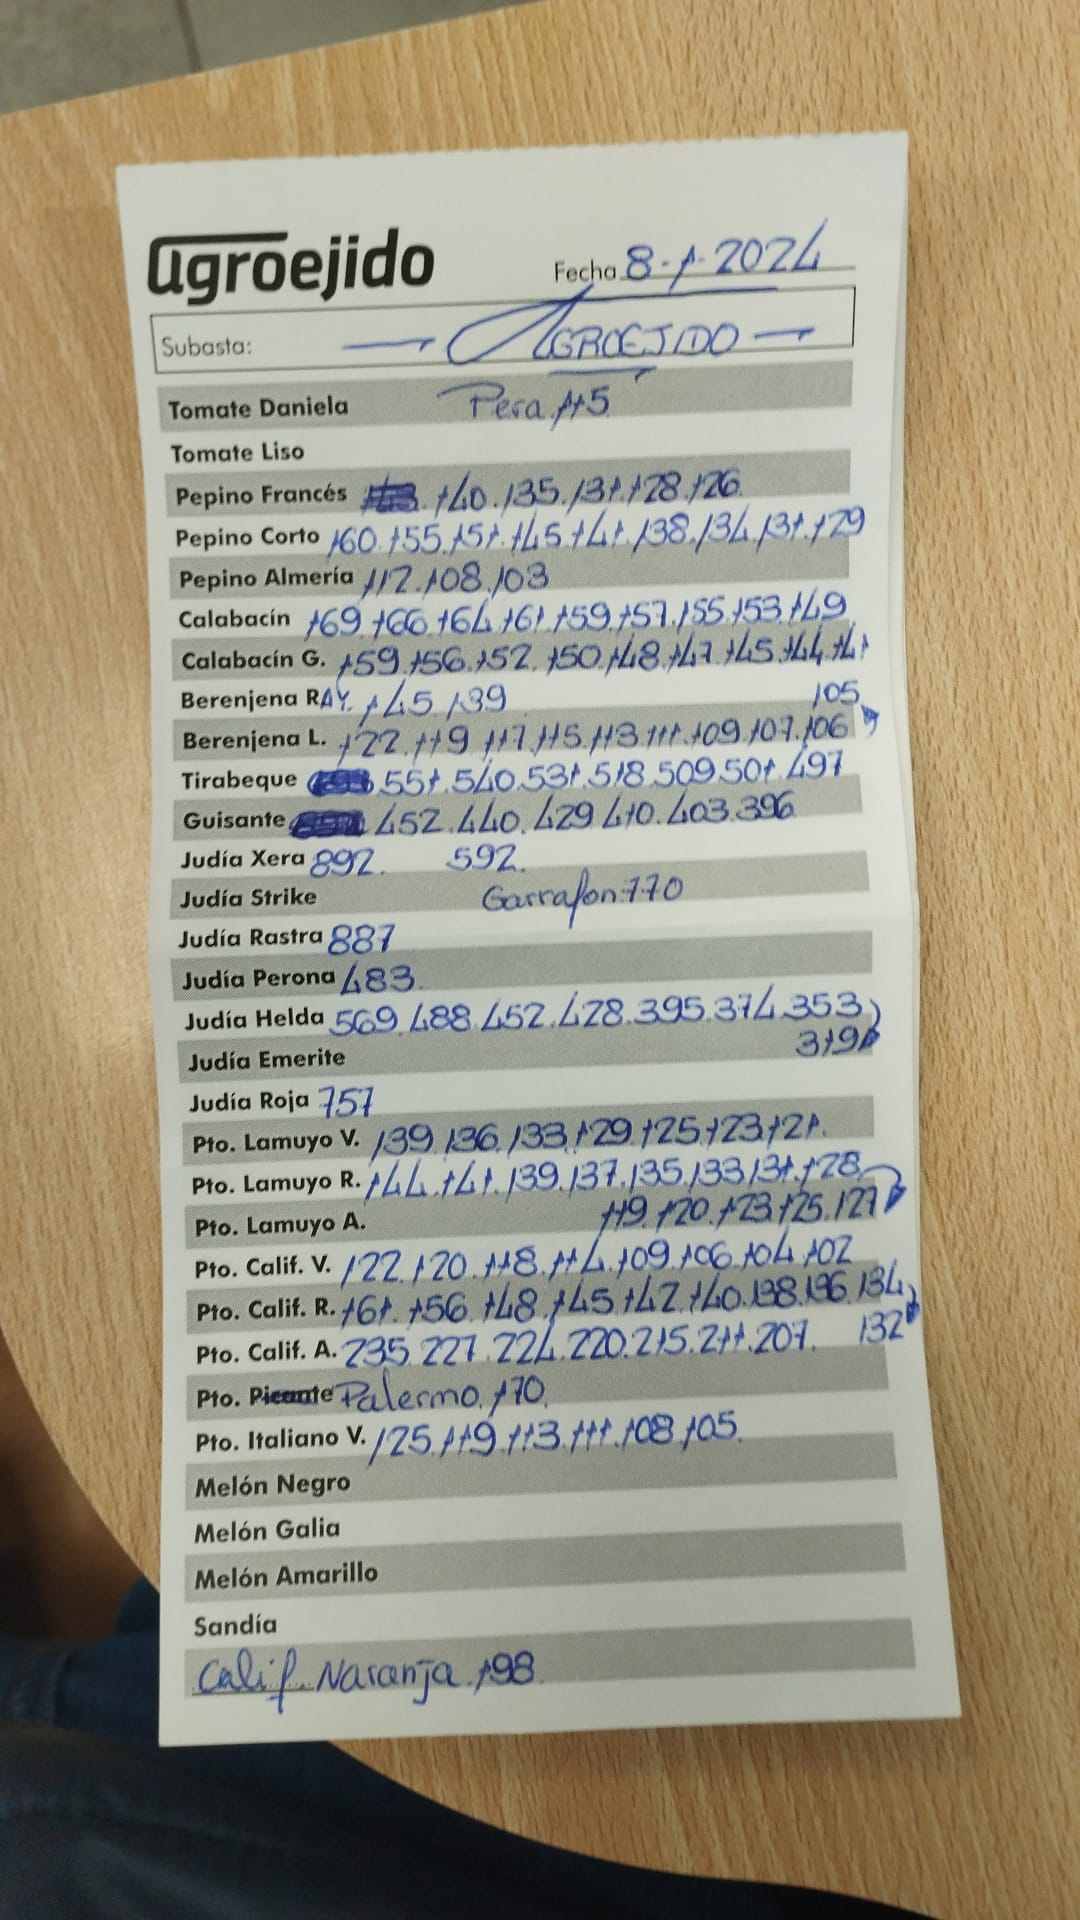 agroejido
Fecha 8-1-2024
Subasta: — AGROEJIDO —
Tomate Daniela Pera 115
Tomate Liso
Pepino Francés 140.135.131.128.126
Pepino Corto 160.155.151.145.141.138.134.131.129
Pepino Almería 112.108.103
Calabacín 169.166.164.161.159.157.155.153.149
Calabacín G. 159.156.152.150.148.147.145.144.141
Berenjena RAY. 145.139
105
Berenjena L. 122.119.117.115.113.111.109.107.106
Tirabeque 551.540.531.518.509.501.497
Guisante 452.440.429.410.403.396
Judía Xera 892. 592.
Judía Strike Garrafon 770
Judía Rastra 887
Judía Perona 483
Judía Helda 569.488.452.428.395.374.353
319
Judía Emerite
Judía Roja 757
Pto. Lamuyo V. 139.136.133.129.125.123.121.
Pto. Lamuyo R. 144.141.139.137.135.133.131.128
Pto. Lamuyo A. 119.120.123.125.127
Pto. Calif. V. 122.120.118.114.109.106.104.102
Pto. Calif. R. 161.156.148.145.142.140.138.136.134
132
Pto. Calif. A. 235.227.224.220.215.211.207.
Pto. Picante Palermo.170.
Pto. Italiano V. 125.119.113.111.108.105.
Melón Negro
Melón Galia
Melón Amarillo
Sandía
Calif. Naranja.198